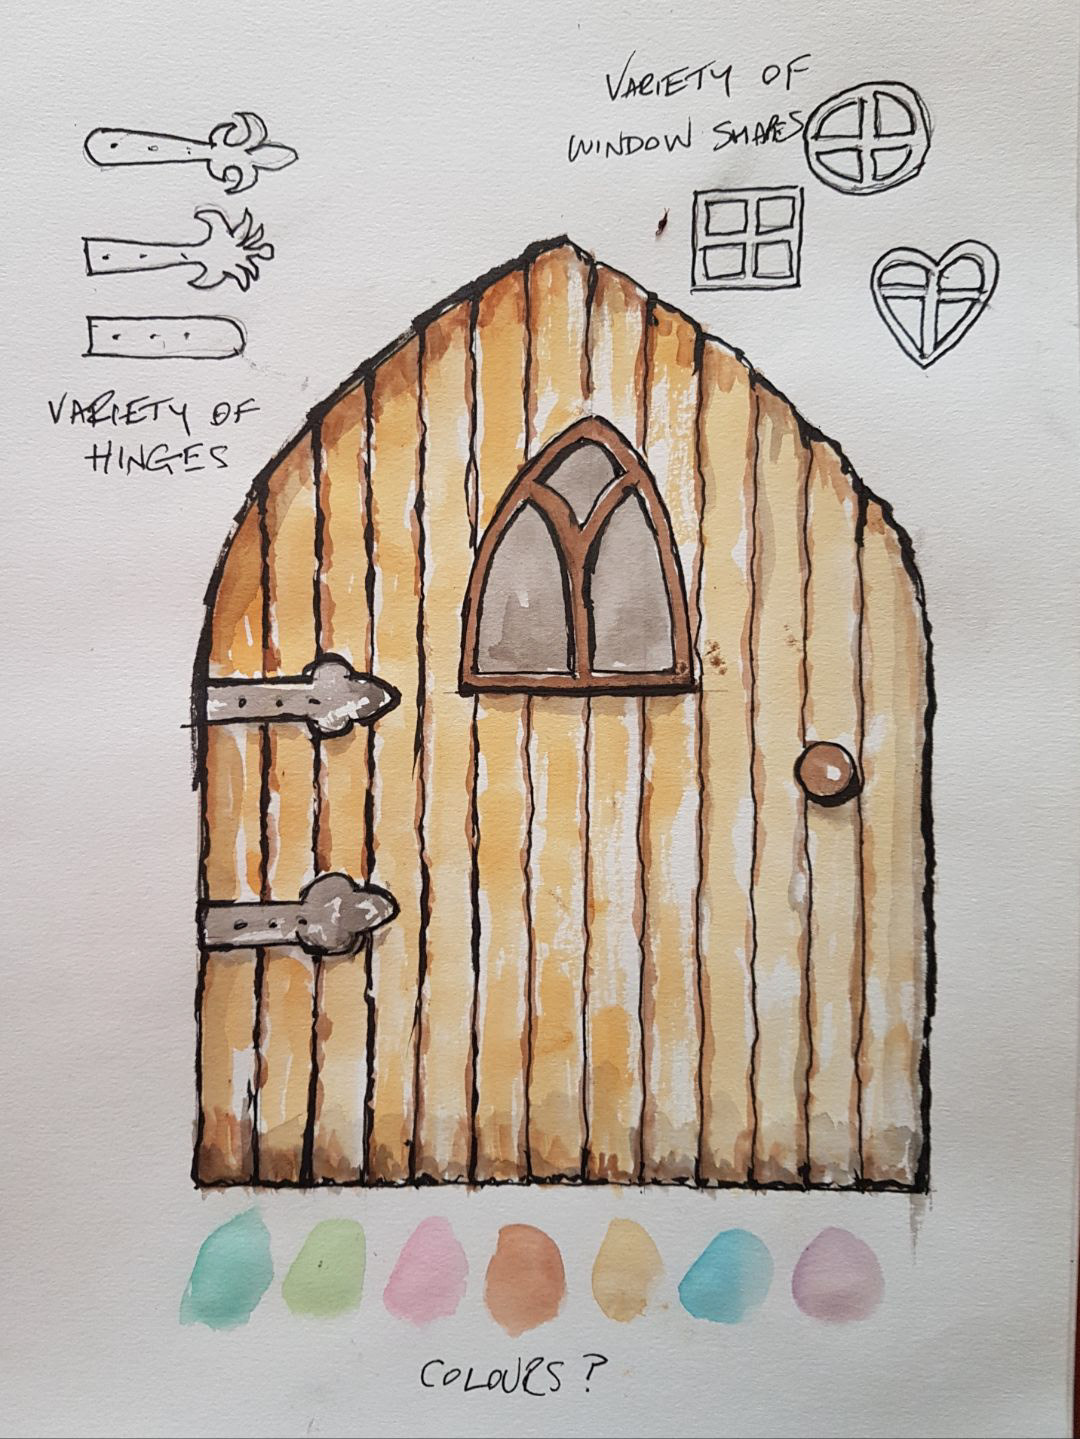 VARIETY OF
WINDOW SHAPES
VARIETY OF
HINGES
COLOURS?